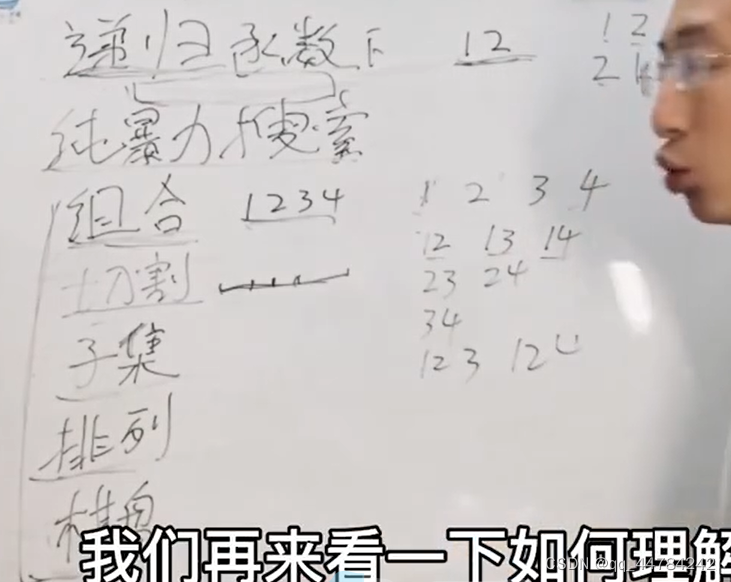 递归函数下 12 12
2
纯暴力搜索
组合 1234 1 2 3 4
12 13 14
切割 23 24
34
子集 123 124
排列
棋盘
我们再来看一下如何理解
CSDN @qq_44784242